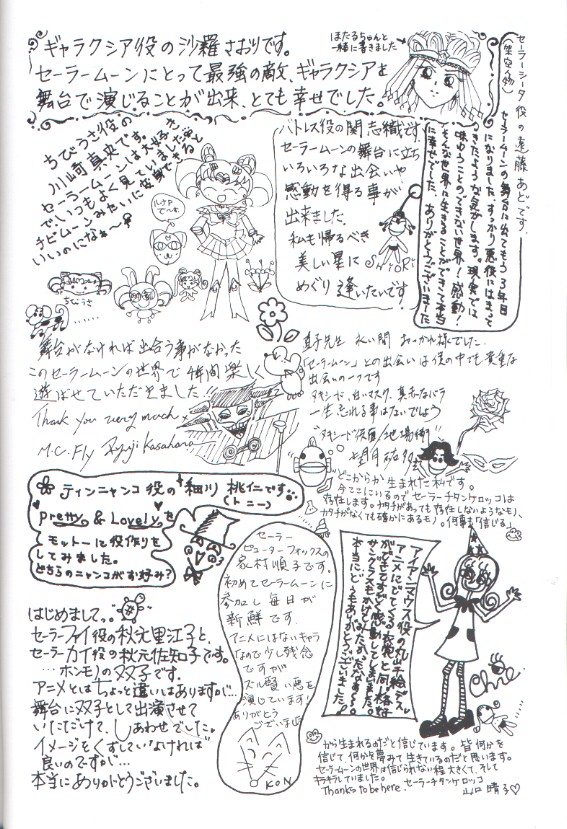 ギャラクシア役の沙羅さおりです。
セーラームーンにとって最強の敵、ギャラクシアを
舞台で演じることが出来、とても幸せでした。
ほたるちゃんと
一緒に書きました
セーラーシータ役の遠藤あどです
セーラームーンの舞台に出てもう3年目
になりました。すっかり悪役にはまって
きたような気がします。現実では
味わうことのできない世界!感動!
そんな世界に生きることができて本当
に幸せでした。ありがとうございましたー
ちびうさ役の
川崎真央です。
セーラームーンは大好きな
でいつもよく見ていました
チビムーンみたいに変身できると
いいのになぁ〜
ルナP
で〜す
ちびうさ
バトレス役の関志織です。
セーラームーンの舞台に立ち
いろいろな出会いや
感動を得る事が
出来ました。
私も帰るべき
美しい星に
めぐり逢いたいです!
SHIORI
舞台がなければ出会う事がなかった
このセーラームーンの世界で 1年間楽しく
遊ばせていただきました
Thank you very much
M.C. Fly Ryuji Kasahara
直子先生 永い間 おつかれ様でした。
「セーラームーン」との出会いは僕の中でも貴重な
出会いの一つです
タキシード、白いマスク、真赤なバラ
一生忘れる事はないでしょう
"タキシード仮面/地場衛"
望月祐多
ティンニャンコ役の細川 桃仁です
(トニー)
pretty & Lovely を
モットーに役作りを
してみました。
どちらのニャンコがお好み?
どこからか生まれた私です。
今ここにいるのでセーラーチタンケロッコは
存在します。カタチがあっても存在しないようなモノ、
カタチがなくても確かにあるモノ。何事も「信じる」
セーラー
ピューターフォックスの
家村順子です。
初めてセーラームーンに
参加し毎日が
新鮮です.
アニメにはないキャラ
なので少し残念
ですが
ズル賢い悪を
演じています!
ありがとう
ございます
KON
アイアンマウス役の丸山千絵デス
本当にどうもありがとうございました!
Chie
はじめまして。。
セーラーファイ役の秋元里江子と、
セーラーカイ役の秋元佐知子です。
…ホンモノの双子です。
アニメとはちょっと違いはありますが…
舞台に双子として出演させて
いただけて、しあわせでした。
イメージをくずしていなければ
良いのですが…
本当にありがとうございました。
から生まれるのだと信じています。皆 何かを
信じて、何かを夢みて生きているのだと思います。
セーラームーンの世界は信じられない程 大きくて、そして
キラキラしていました。
Thanks to be here.
セーラーチタンケロッコ
山口 晴子♡